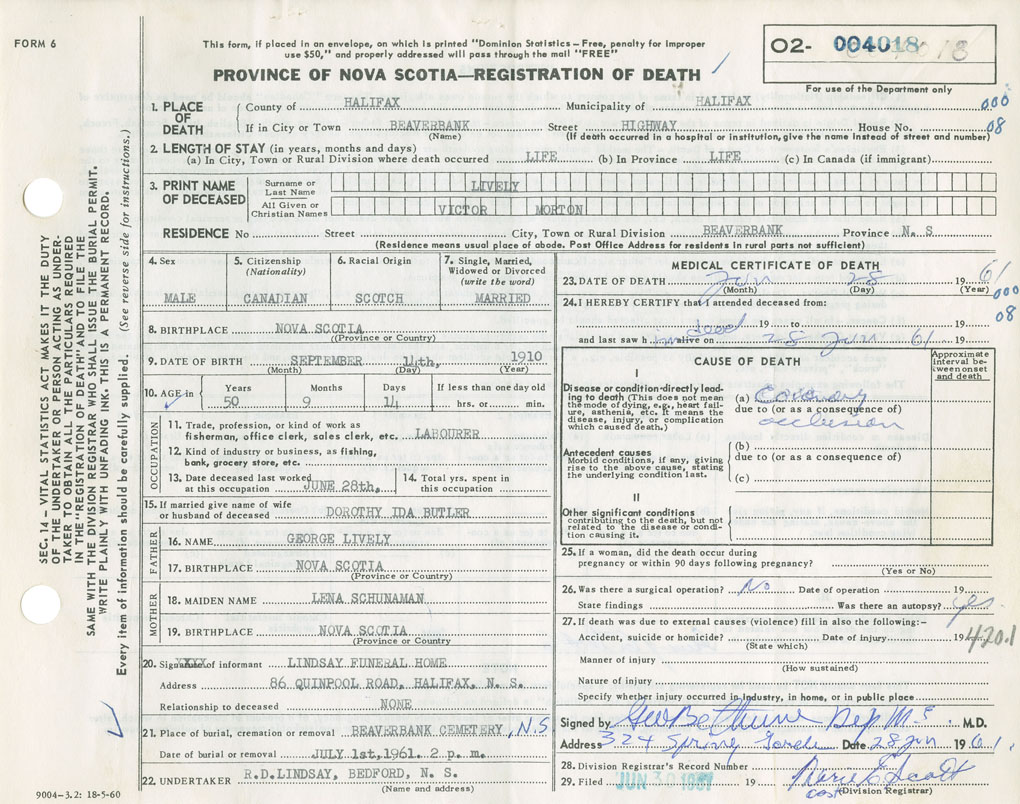 FORM 6
This form, if placed in an envelope, on which is printed "Dominion Statistics – Free, penalty for improper
use $50," and properly addressed will pass through the mail "FREE"
PROVINCE OF NOVA SCOTIA—REGISTRATION OF DEATH
O2- 004018
For use of the Department only
1. PLACE OF DEATH
County of HALIFAX Municipality of HALIFAX 000
If in City or Town BEAVERBANK Street HIGHWAY House No. 08
(Name) (If death occurred in a hospital or institution, give the name instead of street and number)
2. LENGTH OF STAY (in years, months and days)
(a) In City, Town or Rural Division where death occurred LIFE (b) In Province LIFE (c) In Canada (if immigrant)
3. PRINT NAME OF DECEASED
Surname or Last Name LIVELY
All Given or Christian Names VICTOR MORTON
RESIDENCE No Street City, Town or Rural Division BEAVERBANK Province N. S
(Residence means usual place of abode. Post Office Address for residents in rural parts not sufficient)
4. Sex MALE
5. Citizenship (Nationality) CANADIAN
6. Racial Origin SCOTCH
7. Single, Married, Widowed or Divorced (write the word) MARRIED
8. BIRTHPLACE NOVA SCOTIA
(Province or Country)
9. DATE OF BIRTH SEPTEMBER 14th, 1910
(Month) (Day) (Year)
10. AGE in Years 50 Months 9 Days 14 If less than one day old hrs. or min.
OCCUPATION
11. Trade, profession, or kind of work as
fisherman, office clerk, sales clerk, etc. LABOURER
12. Kind of industry or business, as fishing,
bank, grocery store, etc.
13. Date deceased last worked
at this occupation JUNE 28th,
14. Total yrs. spent in
this occupation
15. If married give name of wife
or husband of deceased DOROTHY IDA BUTLER
FATHER
16. NAME GEORGE LIVELY
17. BIRTHPLACE NOVA SCOTIA
(Province or Country)
MOTHER
18. MAIDEN NAME LENA SCHUNAMAN
19. BIRTHPLACE NOVA SCOTIA
(Province or Country
20. Signature of informant LINDSAY FUNERAL HOME
Address 86 QUINPOOL ROAD, HALIFAX, N. S.
Relationship to deceased NONE
21. Place of burial, cremation or removal BEAVERBANK CEMETERY, N.S
Date of burial or removal JULY 1st, 1961. 2 p. m.
22. UNDERTAKER R.D.LINDSAY, BEDFORD, N. S.
(Name and address)
MEDICAL CERTIFICATE OF DEATH
23. DATE OF DEATH Jun 28 1961
(Month) (Day) (Year)
000
08
24. I HEREBY CERTIFY that I attended deceased from:
19 to 19
and last saw h im dead alive on 28 Jun 61 19
CAUSE OF DEATH
Approximate interval between onset and death
I
Disease or condition directly leading to death (This does not mean
the mode of dying, e.g., heart failure, asthenia, etc. It means the
disease, injury, or complication
which caused death.)
(a) Coronary
due to (or as a consequence of)
occlusion
Antecedent causes
Morbid conditions, if any, giving
rise to the above cause, stating
the underlying condition last.
(b)
due to (or as a consequence of)
(c)
II
Other significant conditions
contributing to the death, but not
related to the disease or condition causing it.
25. If a woman, did the death occur during
pregnancy or within 90 days following pregnancy?
(Yes or No)
26. Was there a surgical operation? No Date of operation 19
State findings Was there an autopsy? yes
27. If death was due to external causes (violence) fill in also the following:–
Accident, suicide or homicide? Date of injury 19 420.1
(State which)
Manner of injury
(How sustained)
Nature of injury
Specify whether injury occurred in industry, in home, or in public place
Signed by Geo Bethune Dep M.E M.D.
Address 324 Spring Garden Date 28 Jun 1961.
28. Division Registrar's Record Number
29. Filed JUN 30 1961 19 Scott
(Division Registrar)
SEC. 14 – VITAL STATISTICS ACT MAKES IT THE DUTY
OF THE UNDERTAKER OR PERSON ACTING AS UNDER-
TAKER TO OBTAIN ALL THE PARTICULARS REQUIRED
IN THE "REGISTRATION OF DEATH" AND TO FILE THE
SAME WITH THE DIVISION REGISTRAR WHO SHALL ISSUE THE BURIAL PERMIT.
WRITE PLAINLY WITH UNFADING INK. THIS IS A PERMANENT RECORD.
Every item of information should be carefully supplied. (See reverse side for instructions.)
9004-3.2: 18-5-60